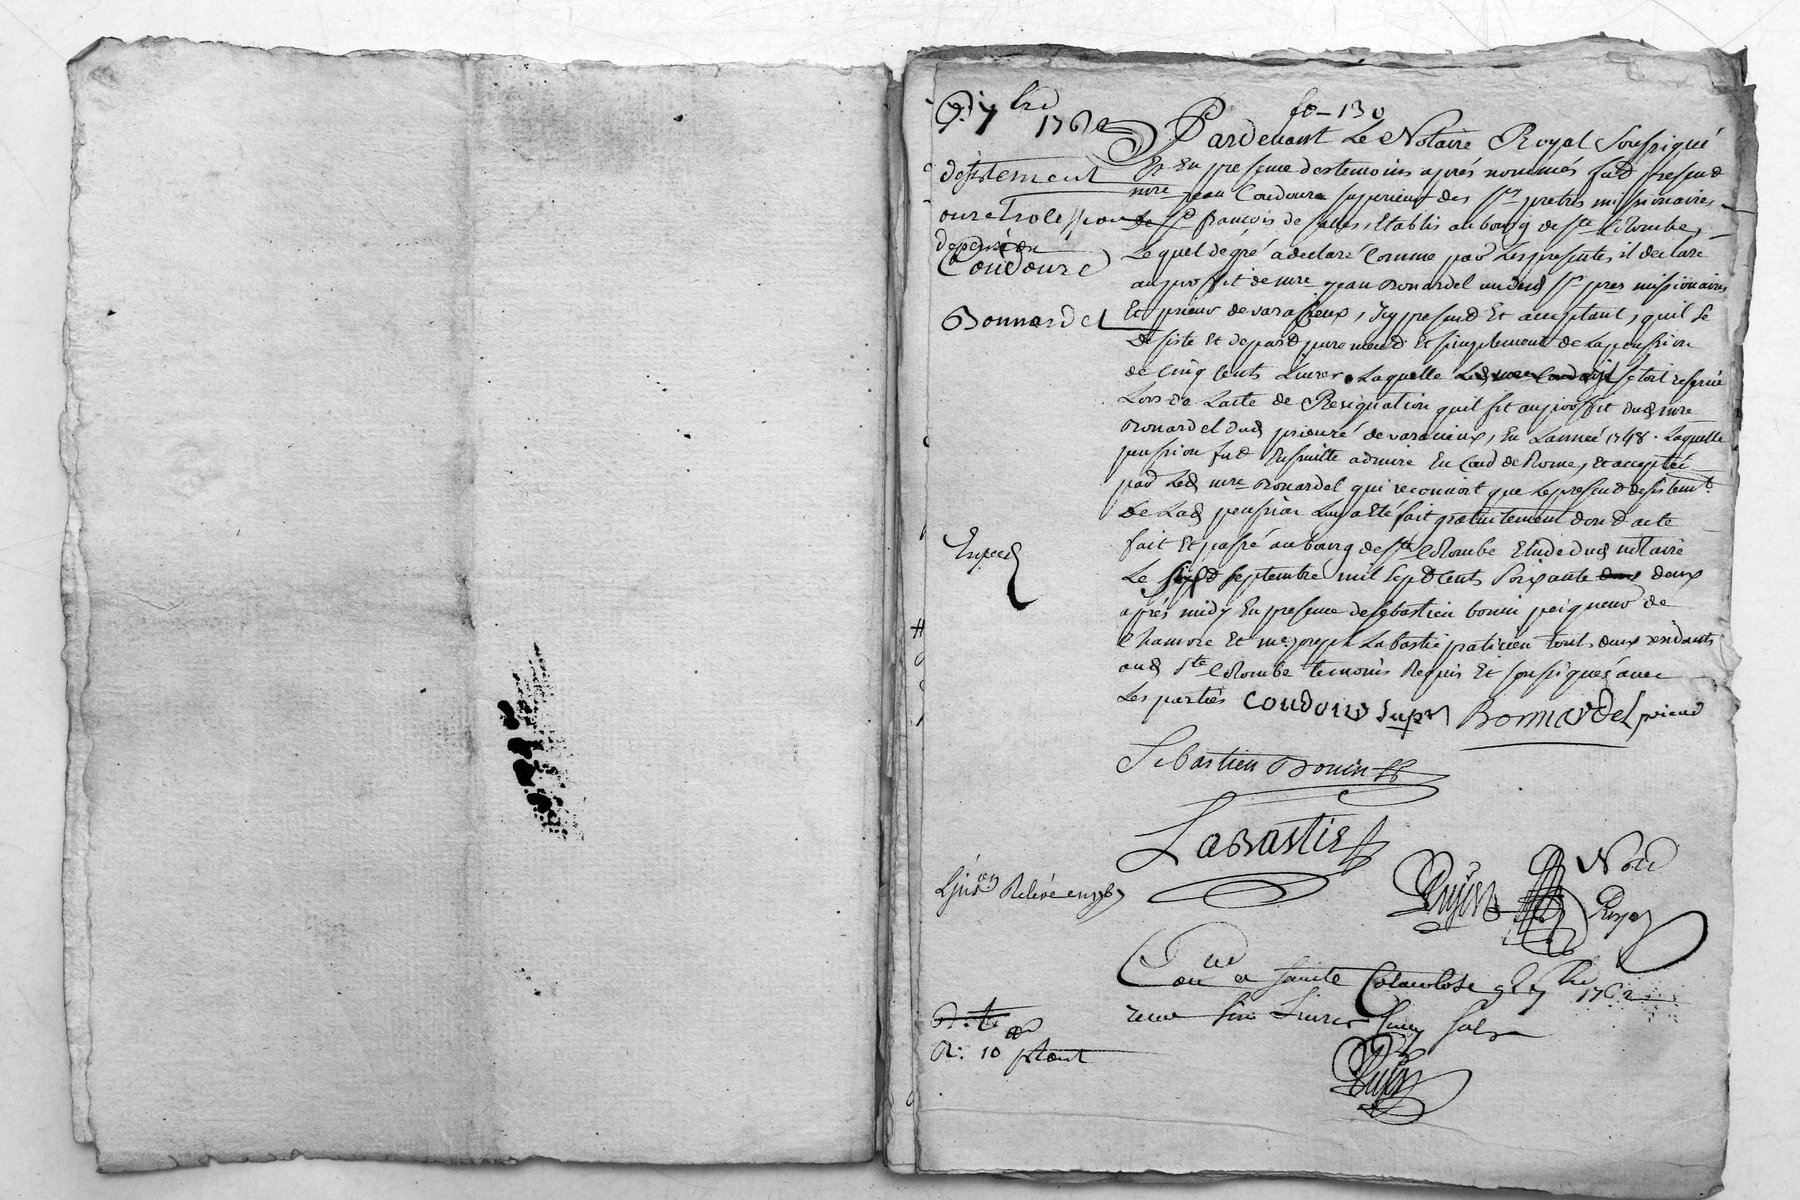 fo - 130
7bre 1762
Pardevant Le Notaire Royal Soussigné
désistement
Et En presence des temoins aprés nommés fud present
mre jean Coudoure superieur des srs pretres missionaires
ou retrocession
de St françois de salles, Etablis au bourg de ste Colombe,
de pension
Coudoure
Lequel de gré a declaré Comme par Les presentes il declare
au proffit de mre jean Bonardel un desd srs pres missionaires
Bonnardel
Et prieur de varassieux, Icy present Et acceptant, quil se
desiste Et depard purement Et simplement de La pension
de Cinq Cents Livres Laquelle setoit reservée
Lors de Lacte de Resignation quil fit au proffit dud mre
Bonardel dud prieuré de varacieux, En Lannée 1748. Laquelle
pension fud Ensuitte admise En Cour de Rome, Et acceptée
par Led mre Bonardel qui reconnoit que Le present desistemt
de Lad pension Luy a Eté fait gratuitement dond acte
Exped
fait Et passé au bourg de ste Colombe Etude dud notaire
Le septembre mil sept Cents soixante deux
aprés midy En presence de sebastien bonin peigneur de
Chanvre Et me joseph Labastie praticien tous deux residants
aud ste Colombe temoins Requis Et soussignés avec
Les parties Coudoure supr Bonnardel prieur
Sebastien Bonin
Labastie
Notre
Dujon
Royal
Conlé a sainte Colombe 7bre 1762
receu six Livres Cinq sols
R: 10 s
Dujon